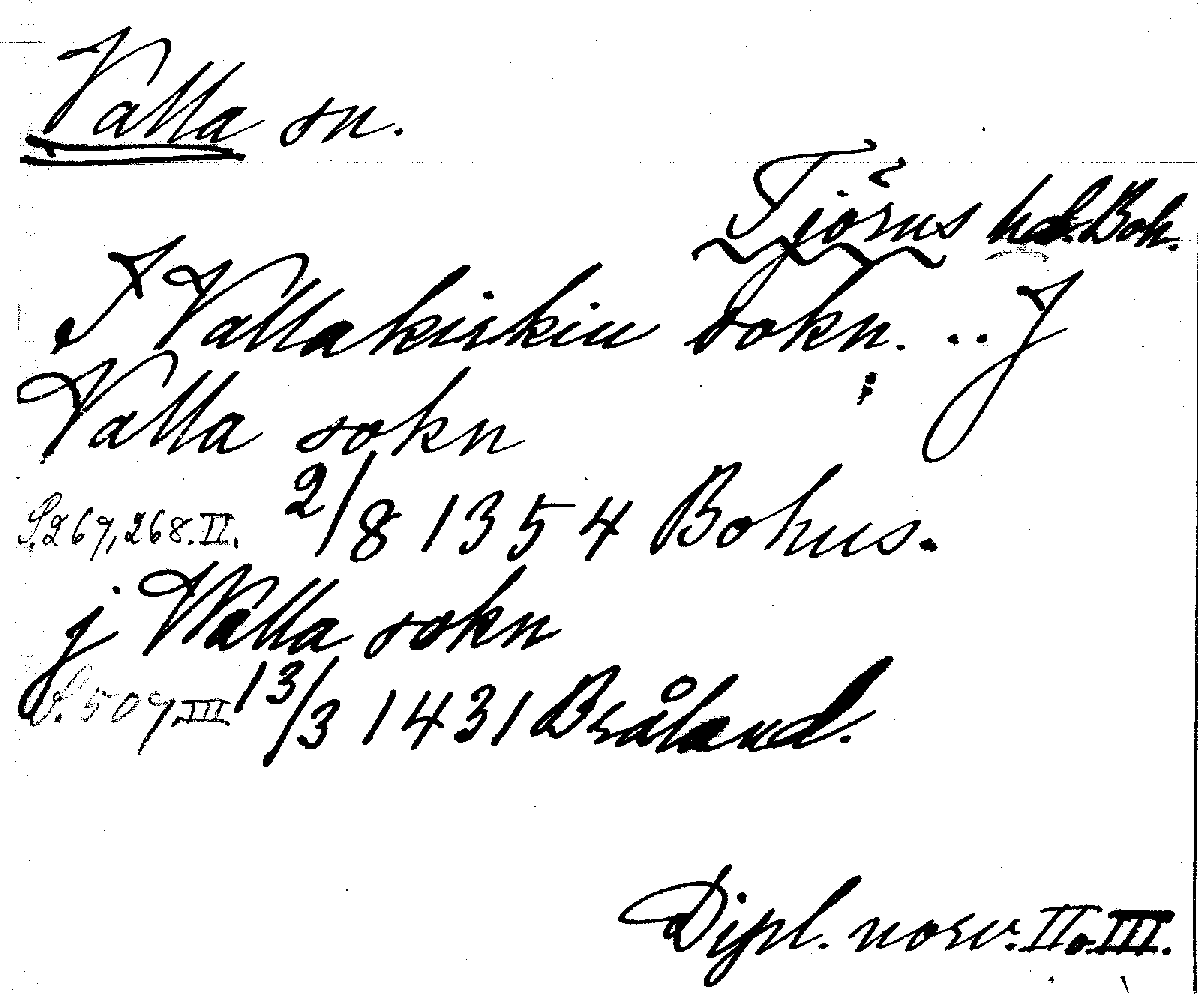 Valla sn.
Tjörns hd. Boh.
I Vallakirkiu sokn. .. J
Valla sokn
S. 267, 268. II. 2/8 1354 Bohus.
j Walla sokn
S. 507 III 13/3 1431 Bråland.
Dipl. norv. II o. III.